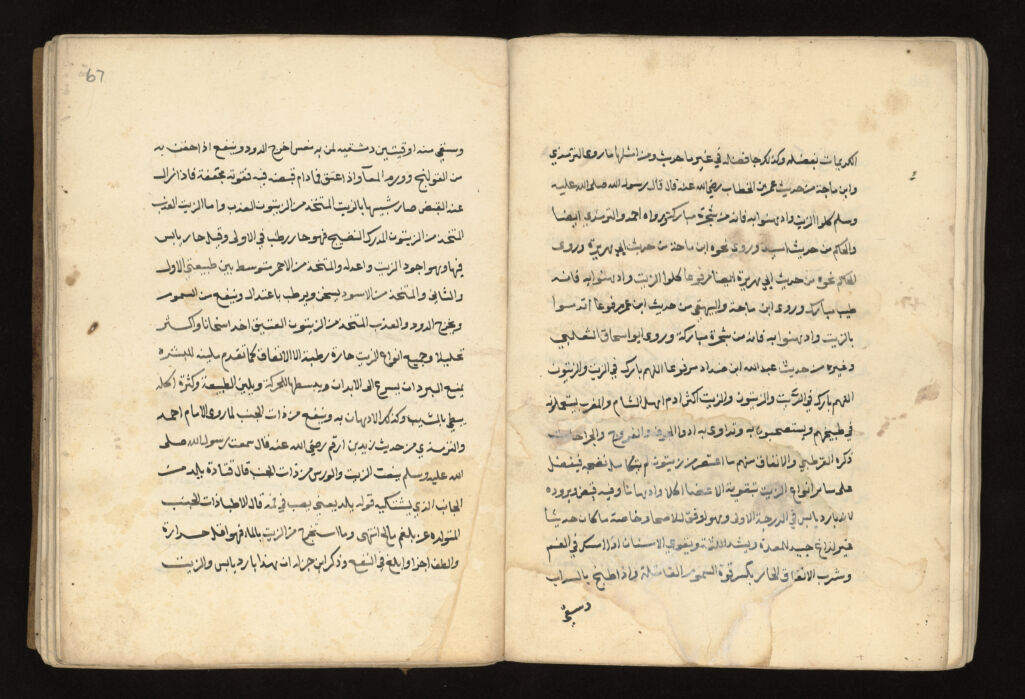 الكريمات بفضله وكذلك جا فضله في غير ما حديث ومن امثلها ما روى الترمذي
وابن ماجة من حديث عمر بن الخطاب رضي الله عنه قال قال رسول الله صلى الله عليه
وسلم كلوا الزيت وادهنوا به فانه من شجرة مباركة رواه احمد والترمذي ايضا
والحاكم من حديث اسيد وروى نحوه ابن ماجة من حديث ابي هريرة وروى
الحاكم نحوه من حديث ابي هريرة ايضا مرفوعا كلوا الزيت وادهنوا به فانه
طيب مبارك وروى ابن ماجة والبيهقي من حديث ابن عمر مرفوعا ائتدموا
بالزيت وادهنوا به فانه من شجرة مباركة وروى ابو اسحاق الثعلبي
وغيره من حديث عبد الله ابن مرفوعا اللهم بارك في الزيت والزيتون
اللهم بارك في الزيت والزيتون والزيت اكثر ادم اهل الشام والمغرب يستعملونه
في طبيخهم ويستصبحون به وتداوى به ادوا الجوف والقروح والجراحات
ذكره القرطبي والانفاق منهم ما اعتصر من زيتون لم يتكامل نضجه فيفضل
على ساير انواع الزيت بتقوية الاعضا اكلا وادهانا وفيه قبض وبروده
لانه بارد يابس في الدرجة الاولى وهو اوفق للاصحا وخاصة ما كان حديثا
غير لذاع جيد للمعدة ويشد اللثة ويقوي الاسنان اذا امسك في الفم
وشرب الانفاق الحار يكسر قوة السموم القاتلة واذا طبخ بالسراب
وسقى
67
وسقى منه اوقيتين دمشقيه لمن به مغص اخرج الدود وينفع اذا احقن به
من القولنج وورم المعا واذا عتق فما دام قبضه فيه فقوته مجتمعة فاذا زال
عنه القبض صار شبيها بالزيت المتخذ من الزيتون العذب واما الزيت العذب
المتخذ من الزيتون المدرك النضيج فهو حار رطب في الاولى وقيل حار يابس
فيها وهو اجود الزيت واعدله والمتخذ من الاحمر متوسط بين طبيعتي الاول
والثاني والمتخذ من الاسود يسخن ويرطب باعتدال وينفع من السموم
ويخرج الدود والعذب المتخذ من الزيتون العتيق احد اسخانا واكثر
تحليلا وجميع انواع الزيت حارة رطبة الا الانفاق كما تقدم ملينه للبشره
يمنع البرد ان يسرع الى الابدان ويبسطها للحركة ويلين الطبيعة وكثرة اكله
يبطي بالشيب وكذلك الادهان به وينفع من ذات الجنب لما روى الامام احمد
والترمذي من حديث زيد بن ارقم رضي الله عنه قال سمعت رسول الله صلى
الله عليه وسلم ينعت الزيت والورس من ذات الجنب قال قتادة يلد من
الجانب الذي يشتكيه قوله يلد يعني يصب في فمه قال الاطبا ذات الجنب
المتولده عن بلغم مالح انتهى وما استخرج من الزيت بالماء فهو اقل حرارة
والطف اجزا وابلغ في النفع وذكر ابن جزله ان هذا بارد يابس والزيت